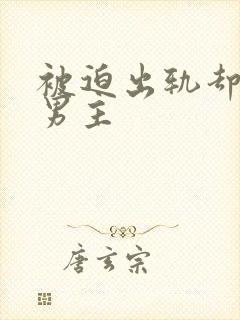 被迫出轨却
男主
唐玄宗